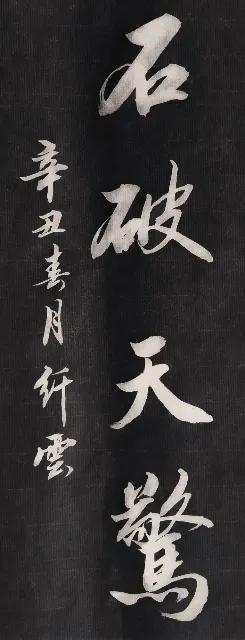 石破天驚
辛丑春月纤雲